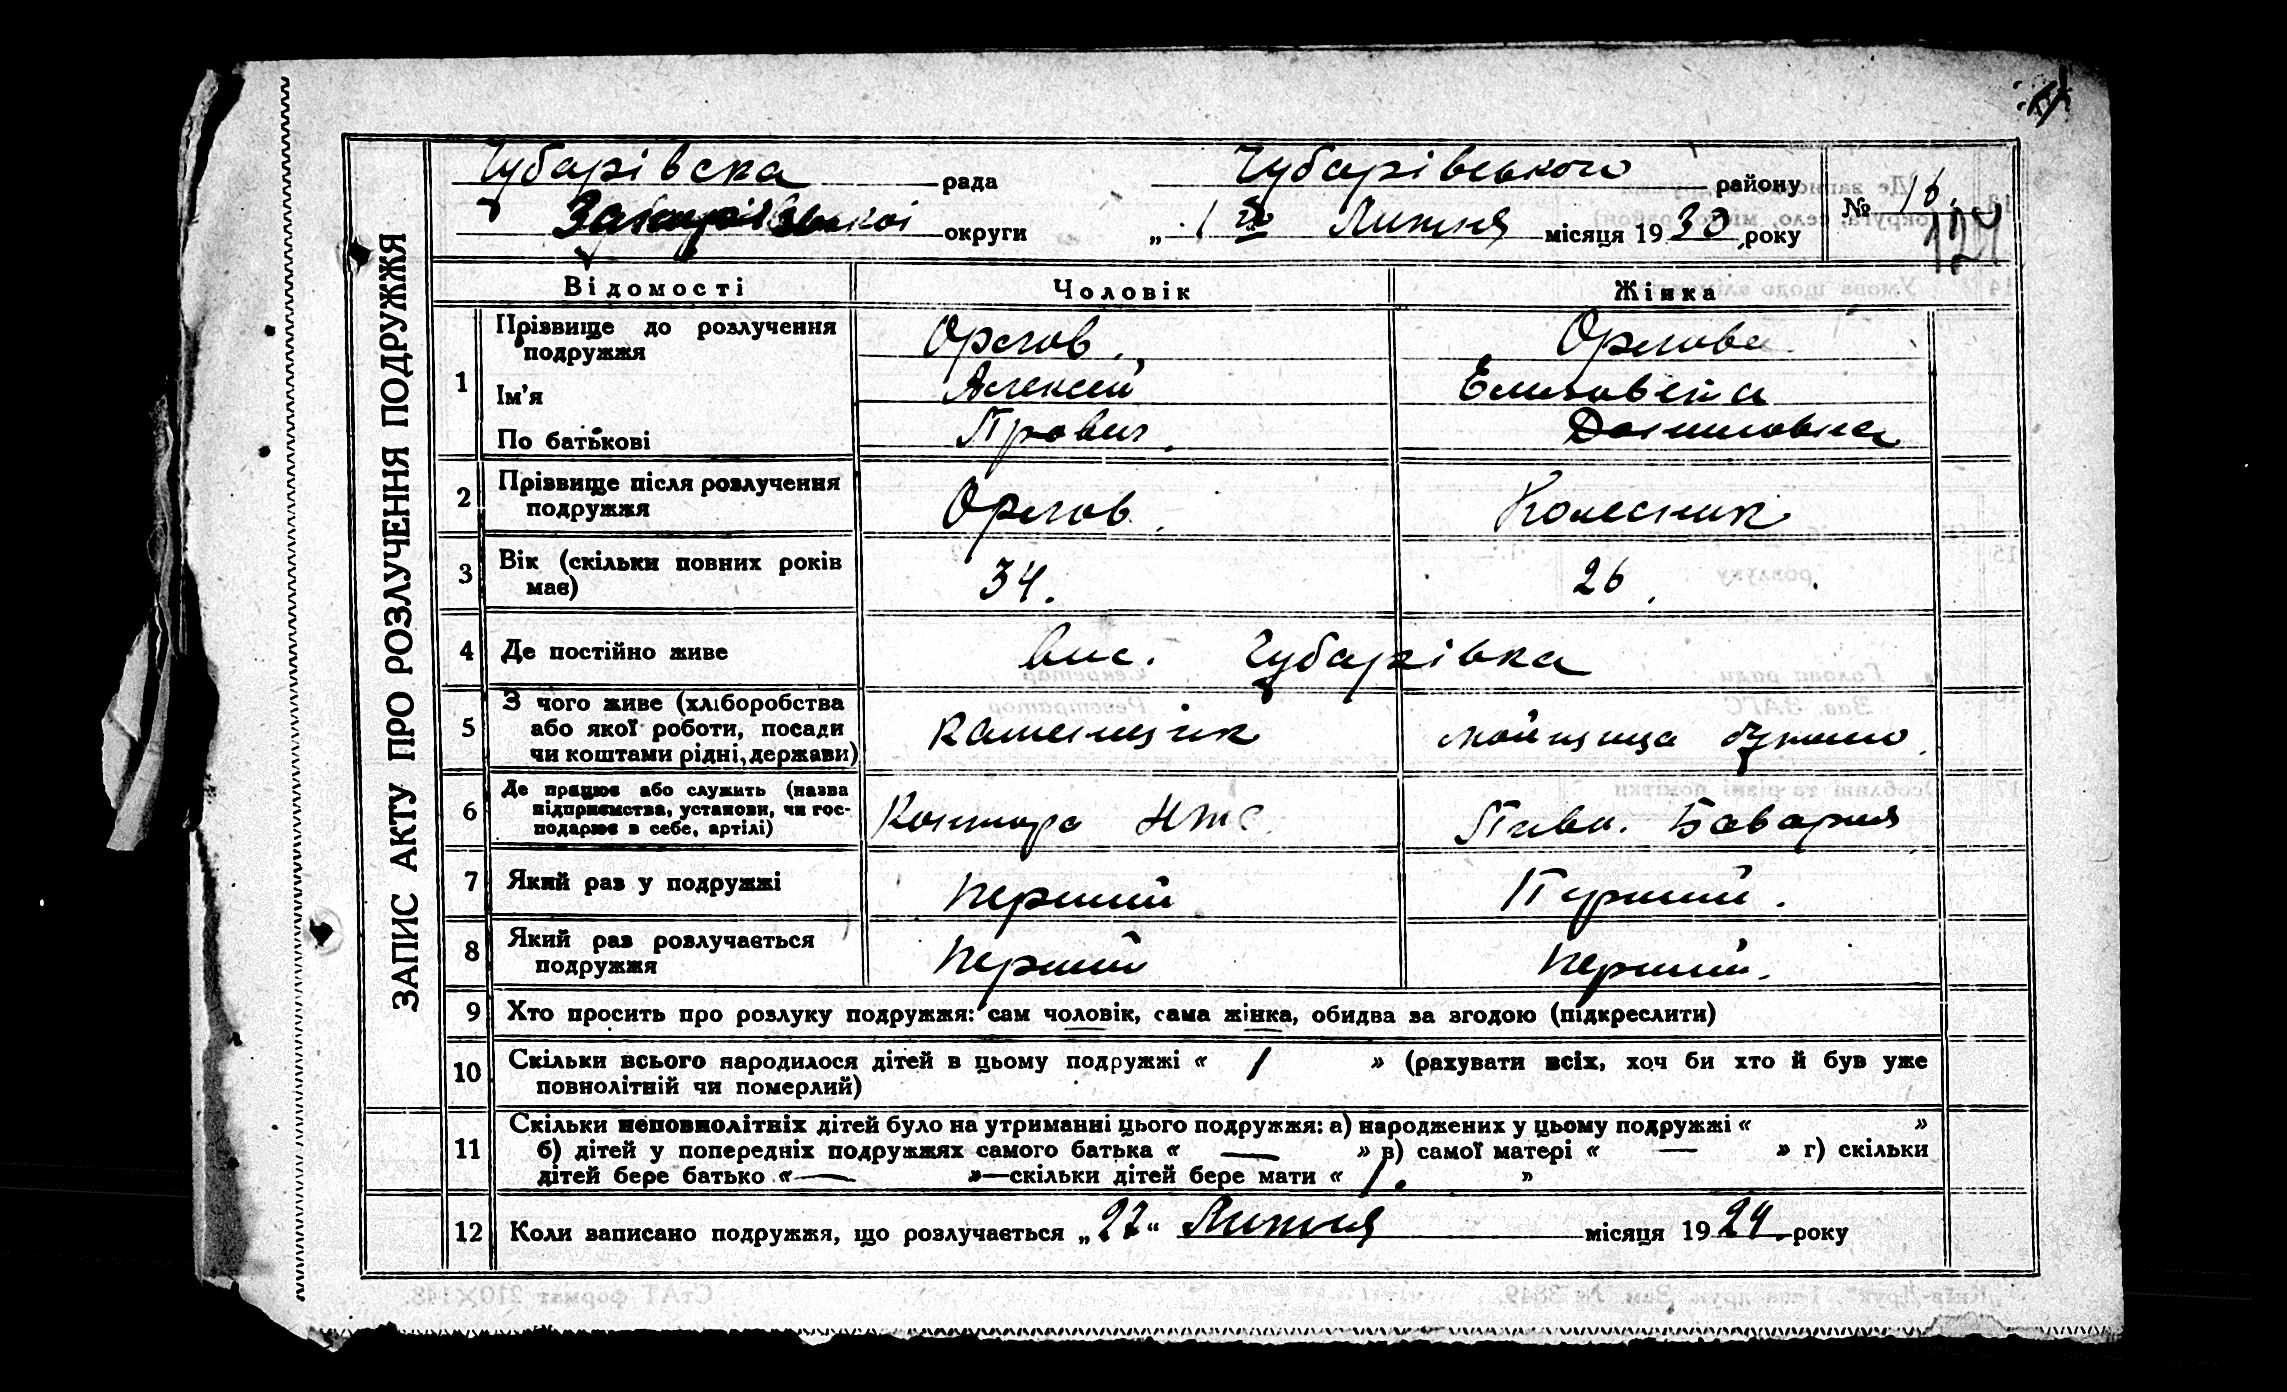 ЗАПИС АКТУ ПРО РОЗЛУЧЕННЯ ПОДРУЖЖЯ
Чубарівска рада Чубарівського району № 16.
округи „ 1 го Липня місяця 1930 року 124
Відомості Чоловік Жінка
1 Прізвище до розлучення подружжя Орлов. Орлова
Ім'я Алексей Елизовета
По батькові Даниловна
2 Прізвище після розлучення подружжя Орлов. Колесник
3 Вік (скільки повних років має) 34. 26.
4 Де постійно живе вис. Чубарівка
5 З чого живе (хліборобства або якої роботи, посади чи коштами рідні, держави) каменщик мойщица
6 Де працює або служить (назва підприємства, установи, чи господарює в себе, артілі) Контора Пивн. Бавария
7 Який раз у подружжі перший Перший.
8 Який раз розлучається подружжя перший перший.
9 Хто просить про розлуку подружжя: сам чоловік, сама жінка, обидва за згодою (підкреслити)
10 Скільки всього народилося дітей в цьому подружжі « 1 » (рахувати всіх, хоч би хто й був уже
повнолітній чи померлий)
11 Скільки неповнолітніх дітей було на утриманні цього подружжя: а) народжених у цьому подружжі « »
б) дітей у попередніх подружжях самого батька « — » в) самої матері « — » г) скільки
дітей бере батько « — »—скільки дітей бере мати « 1. »
12 Коли записано подружжя, що розлучається „22“ Липня місяця 1924. року